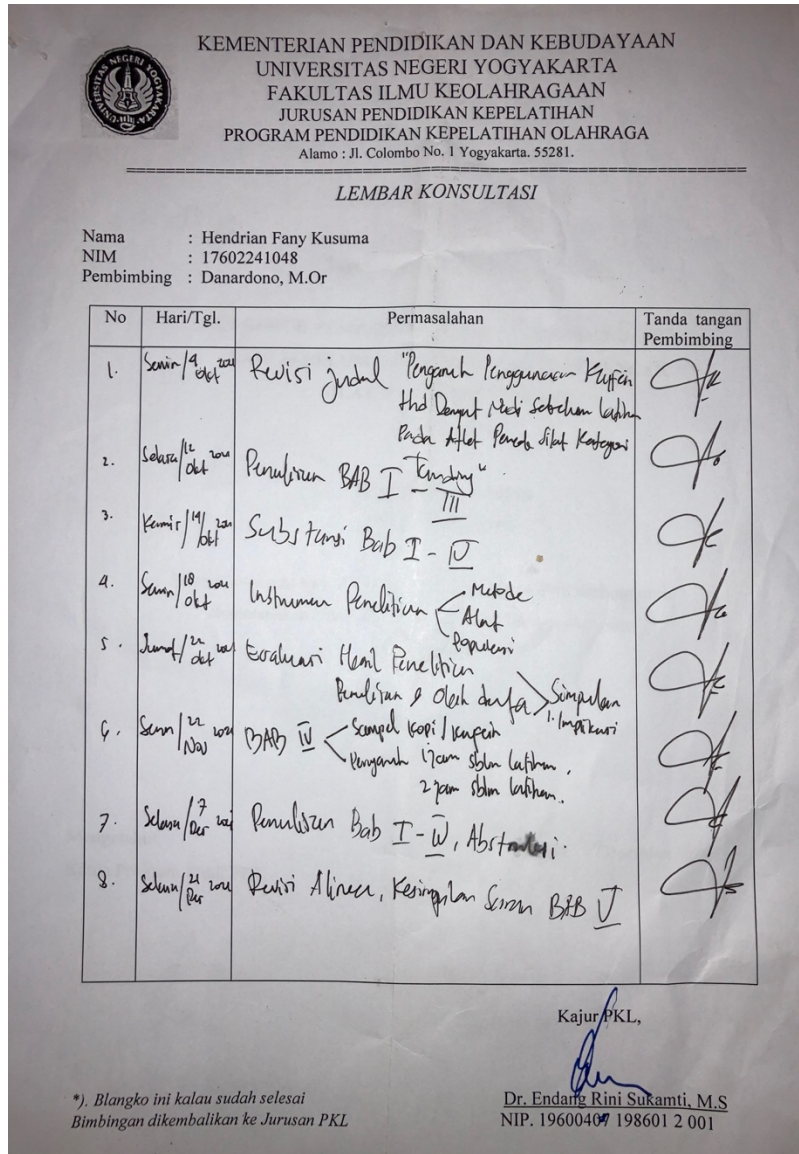 UNIVERSITAS NEGERI YOGYAKARTA
KEMENTERIAN PENDIDIKAN DAN KEBUDAYAAN
UNIVERSITAS NEGERI YOGYAKARTA
FAKULTAS ILMU KEOLAHRAGAAN
JURUSAN PENDIDIKAN KEPELATIHAN
PROGRAM PENDIDIKAN KEPELATIHAN OLAHRAGA
Alamo : Jl. Colombo No. 1 Yogyakarta. 55281.
LEMBAR KONSULTASI
Nama : Hendrian Fany Kusuma
NIM : 17602241048
Pembimbing : Danardono, M.Or
No Hari/Tgl. Permasalahan Tanda tangan
Pembimbing
1. Senin/4 Okt 2021 Revisi judul "Pengaruh Penggunaan Kafein
thd Denyut Nadi Sebelum Latihan
Pada Atlet Pencak Silat Kategori
Tanding"
2. Selasa/12 Okt 2021 Penulisan BAB I - III
3. Kamis/14 Okt 2021 Substansi Bab I - IV
4. Senin/18 Okt 2021 Instrumen Penelitian Metode
Alat
Populasi
5. Jumat/22 Okt 2021 Evaluasi Hasil Penelitian
Penulisan & Olah data Simpulan
Implikasi
6. Senin/22 Nov 2021 BAB IV Sampel Kopi/Kafein
Pengaruh 1 jam sblm latihan,
2 jam sblm latihan.
7. Selasa/7 Des 2021 Penulisan Bab I - IV,
8. Selasa/21 Des 2021 Revisi Alinea, Kesimpulan Saran BAB V
Kajur PKL,
*). Blangko ini kalau sudah selesai
Bimbingan dikembalikan ke Jurusan PKL
Dr. Endang Rini Sukamti, M.S
NIP. 19600407 198601 2 001